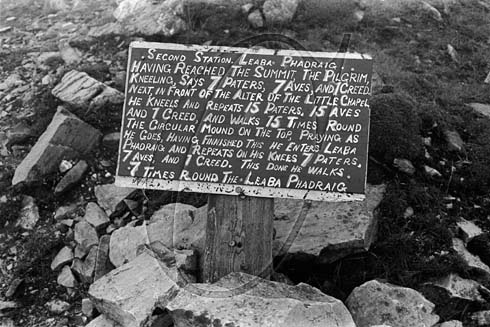 Second Station. Leaba Phadraig
Having Reached The Summit, The Pilgrim,
Kneeling, Says 7 Paters, 7 Aves, and 1 Creed.
Next, in Front of the Alter of the Little Chapel
He Kneels and Repeats 15 Paters, 15 Aves
and 1 Creed, and Walks 15 Times Round
the Circular Mound on the Top, Praying as
He Goes, Having Finnished This He Enters Leaba
Phadraig and Repeats on His Knees 7 Paters,
7 Aves, and 1 Creed. This Done He Walks
7 Times Round The Leaba Phadraig.